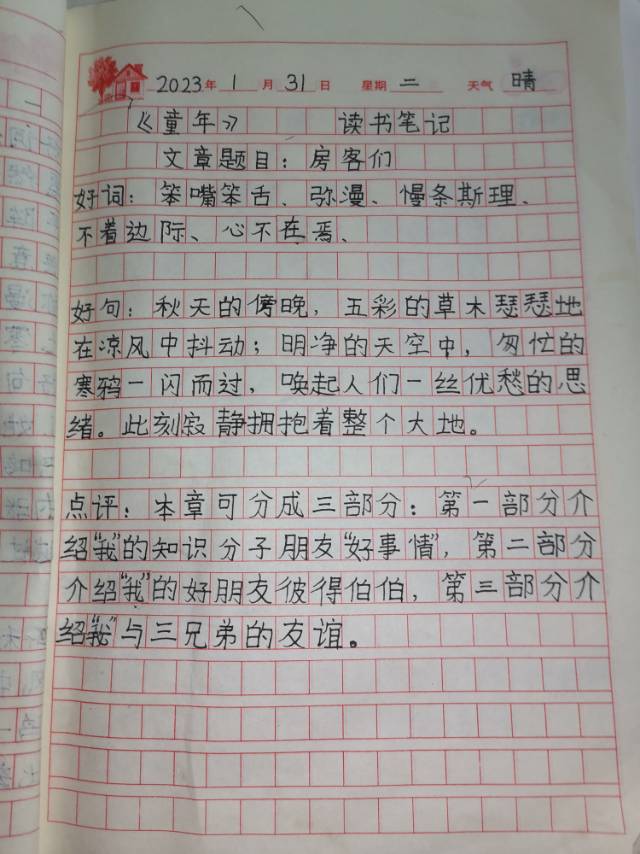 2023年 1月 31日 星期 二 天气 晴
《童年》 读书笔记
文章题目：房客们
好词：笨嘴笨舌、弥漫、慢条斯理、
不着边际、心不在焉、
好句：秋天的傍晚，五彩的草木瑟瑟地
在凉风中抖动；明净的天空中，匆忙的
寒鸦一闪而过，唤起人们一丝优愁的思
绪。此刻寂静拥抱着整个大地。
点评：本章可分成三部分：第一部分介
绍“我”的知识分子朋友“好事情”，第二部分
介绍“我”的好朋友彼得伯伯，第三部分介
绍“我”与三兄弟的友谊。